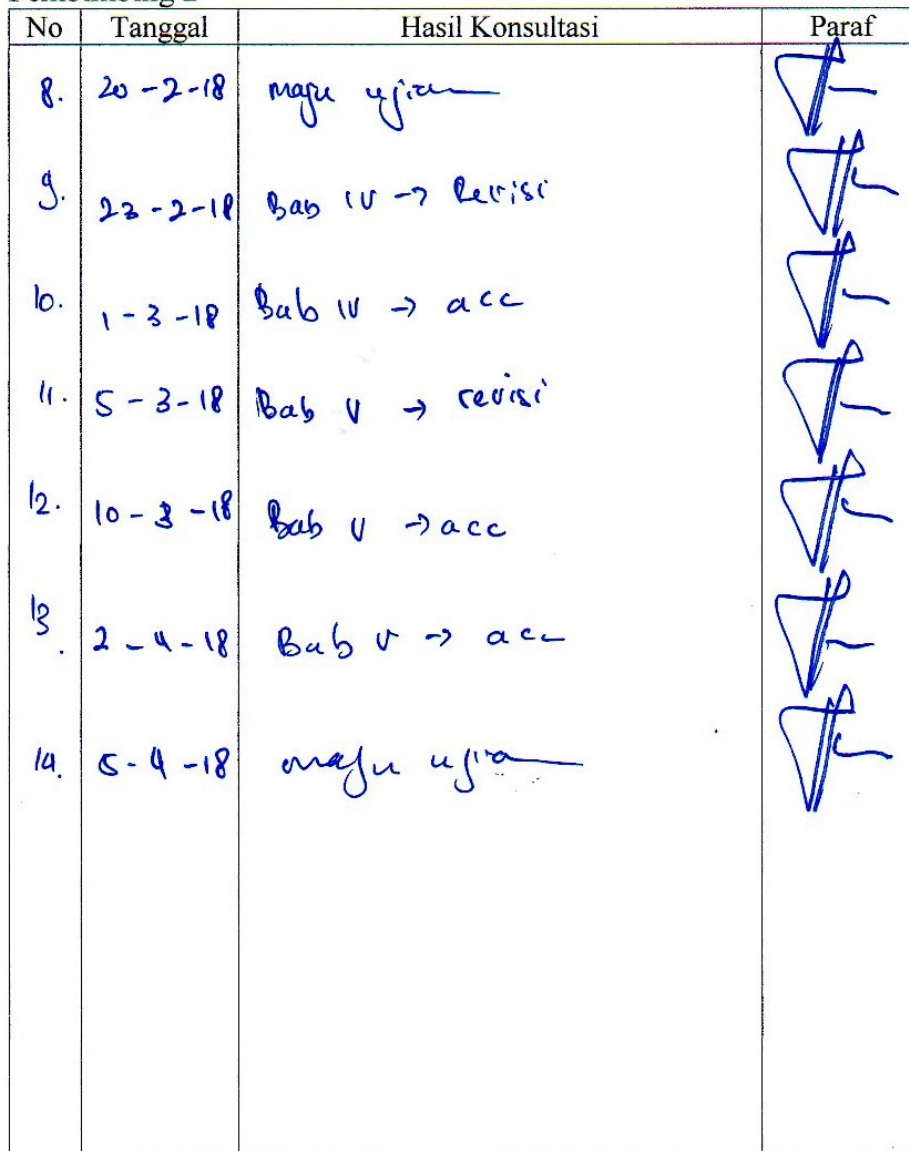 No Tanggal Hasil Konsultasi Paraf
8. 20-2-18 maju ujian
9. 23-2-18 Bab IV → Revisi
10. 1-3-18 Bab IV → acc
11. 5-3-18 Bab V → revisi
12. 10-3-18 Bab V → acc
13. 2-4-18 Bab V → acc
14. 5-4-18 maju ujian